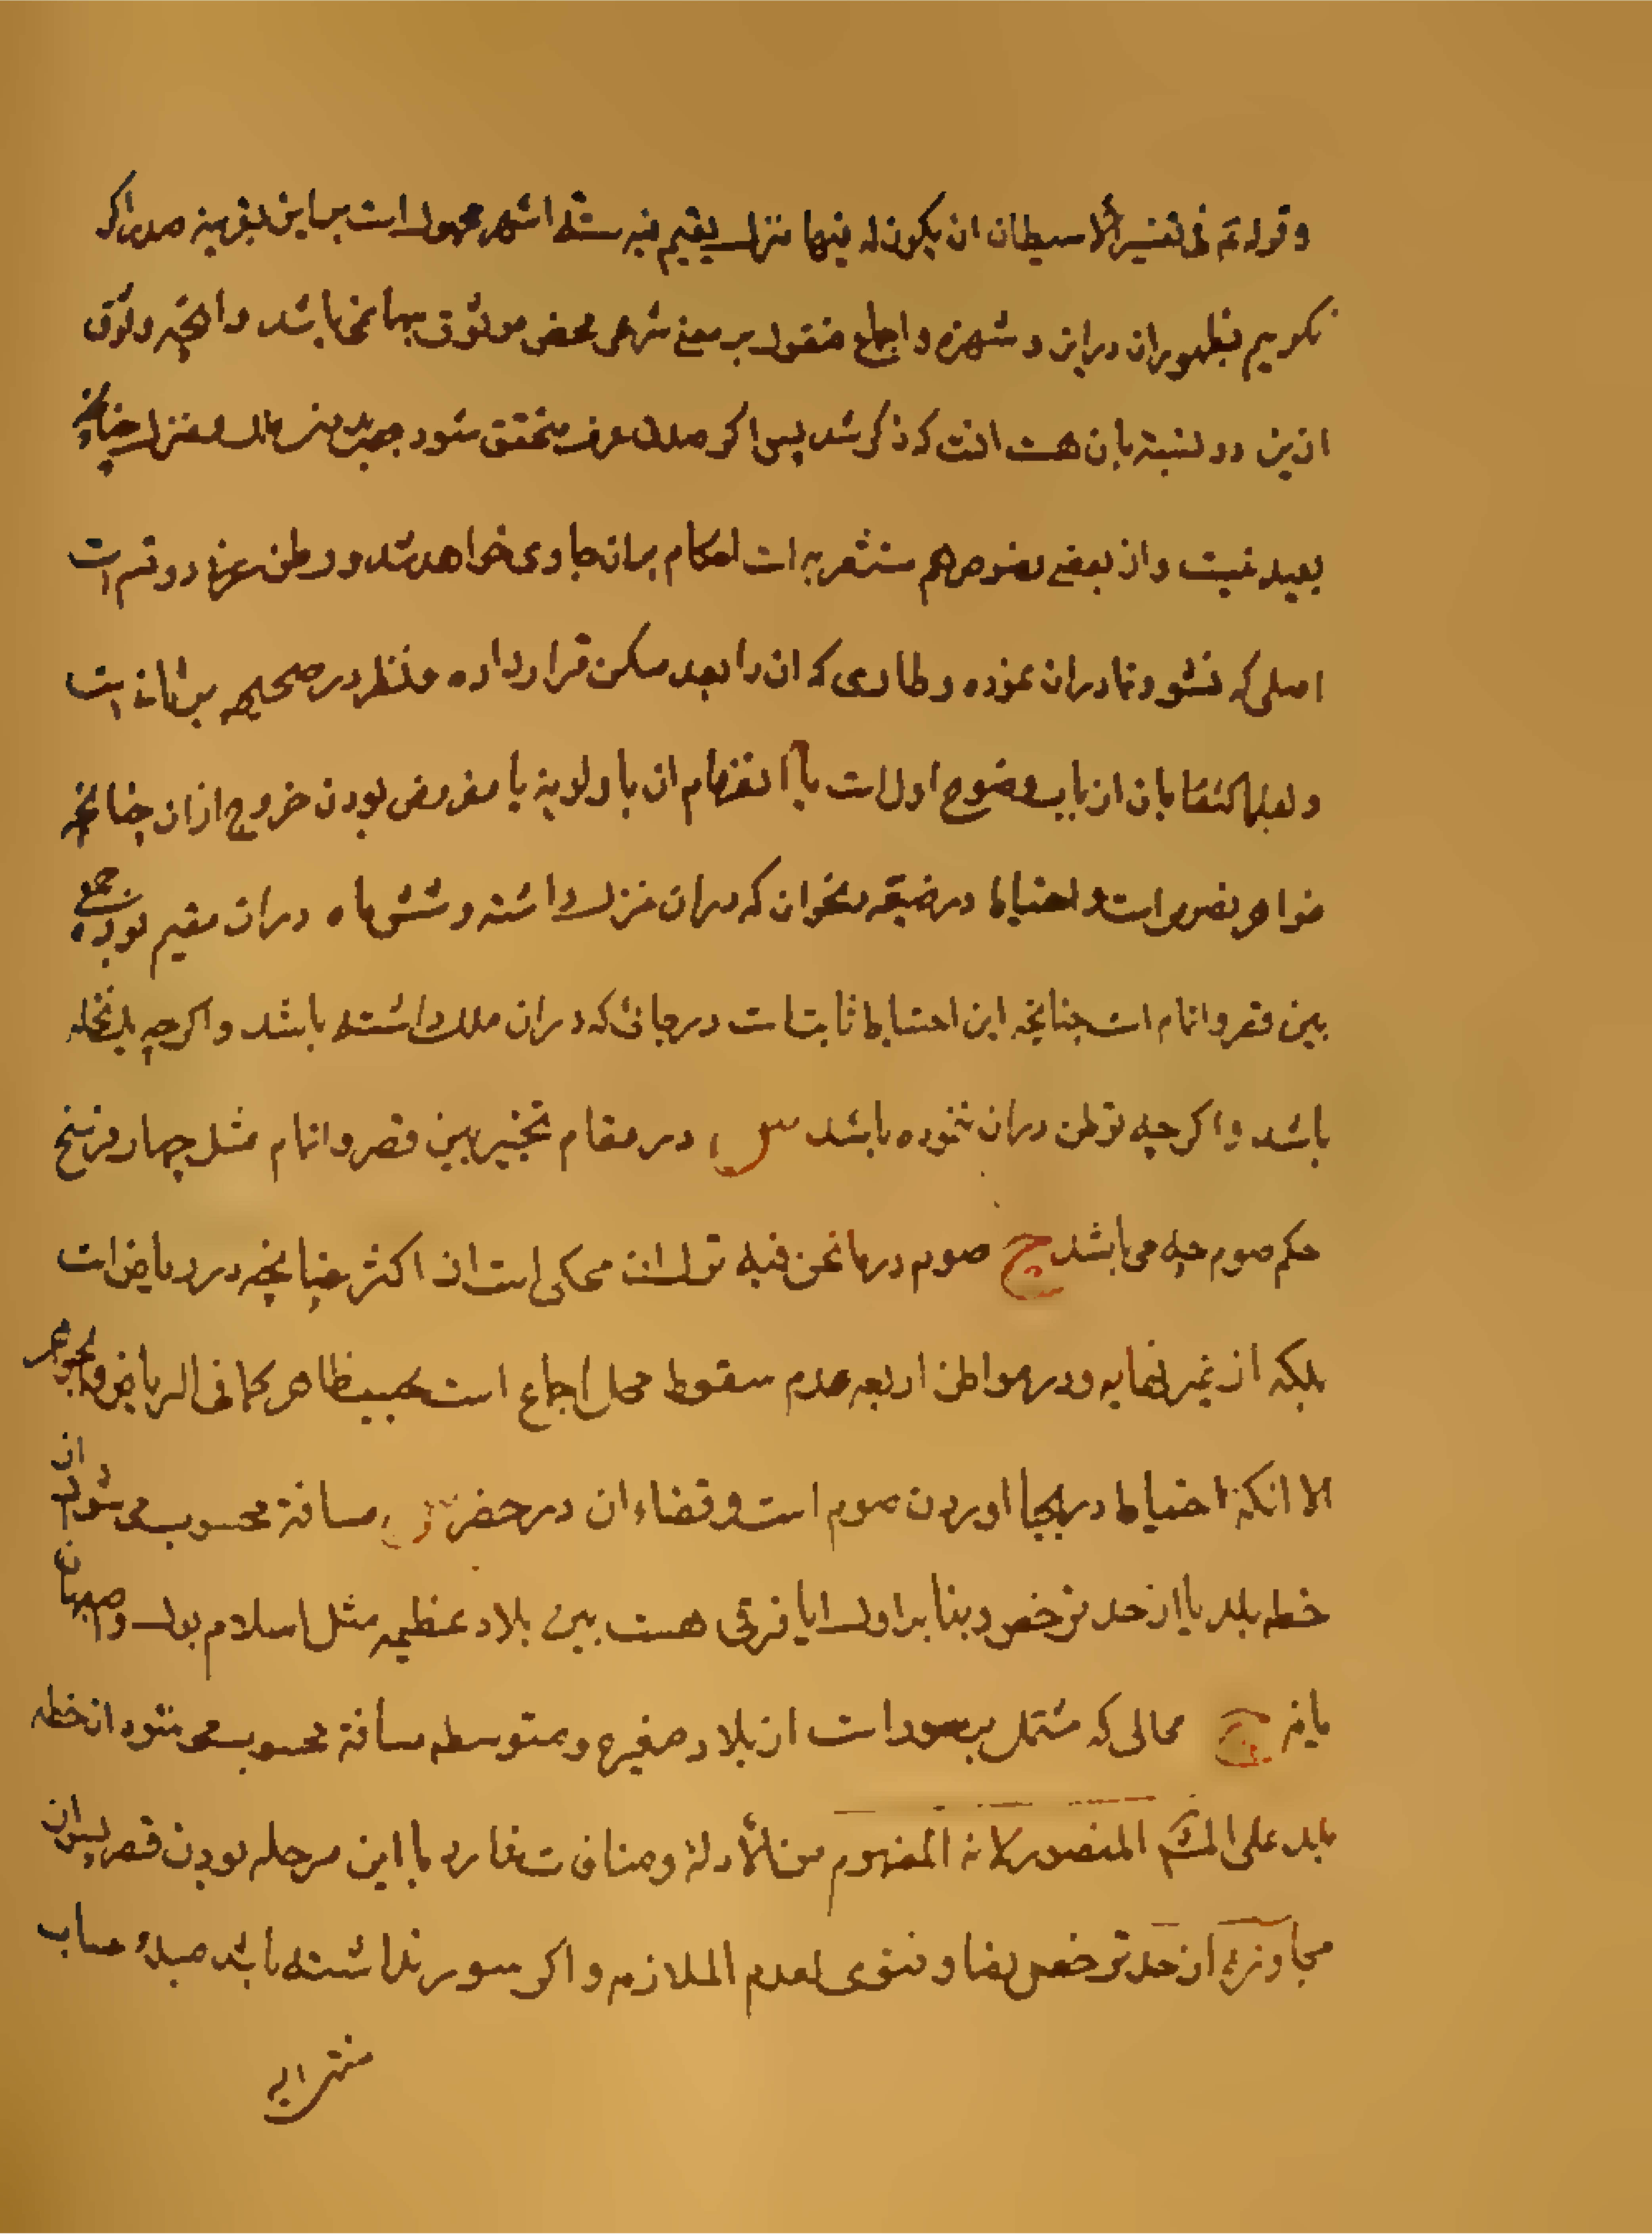 وقوله ع في تفسير الاستيطان ان يكون له فيها منزل يقيم فيه ستة اشهر محمول است براين بقرينه صدر اكر
نكوييم بظهوران دراين و شهرة و اجماع منقول بر معنى شرعى محض موثوق بهما نمى باشد و انچه وثوق
ازين دو نسبة بان هست انست كه ذكر شد پس اكر صدق عرف متحقق شود بدون ملك و منزل چنانچه
بعيد نيست و از بعض نصوص هم مستشعر به است احكام بران جاوى خواهد شد و وطن عرفى دو قسم است
اصلى كه نشو و نما دران نموده و طارى كه ان را بعد مسكن قرار داده و نظر در صحيحه بر ثانى است
و لعلها اكتفا بان از باب وضوح اول است يا انفهام ان باولوية يا مفروض بودن خروج ازان چنانچه
ظواهر نصوص است و احتياط در ضيعه و نحو ان كه دران منزل داشته و شش ماه دران مقيم بوده جمع
بين قصر و اتمام است چنانچه اين احتياط ثابت است در جائى كه دران ملك داشته باشد و اكرچه يك نخله
باشد و اكرچه توطن دران ننموده باشد س در مقام تخيير بين قصر و اتمام مثل چهار فرسخ
حكم صوم چه مى باشد ج صوم در ما نحن فيه قول است محكى است از اكثر چنانچه در رياض است
بلكه از غير نهايه و در مواطن اربعه عدم سقوط محل اجماع است بحسب ظاهر كما فى الرياض و الجواهر
الا انكه احتياط در اينجا اوردن صوم است و قضاء ان در حضر س مسافة محسوب مى شود از
خطه بلد يا از حد ترخص و بنا بر اول ايا فرقى هست بين بلاد عظيمه مثل اسلام بول و اصبهان
يا نه ج محالى كه مشتمل بر سور است از بلاد صغيره و متوسطه مسافة محسوب مى شود از خطه
بلد على المشهور المنصور لانه المفهوم من الأدلة و منافات ندارد با اين مرحله بودن قصر پس از
مجاوزة از حد ترخص نصا و فتوى لعدم الملازمه و اكر سور نداشته باشد مبدء حساب
منتهى اليه